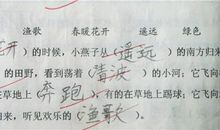 渔歌 春暖花开 遥远 绿色
花开）的时候，小燕子从（遥远）的南方归来
）的田野，看到荡着（清波）的小河；它飞向
在草地上（奔跑），有的在草地上踢球；它飞向
归来，听见欢乐的（渔歌）。